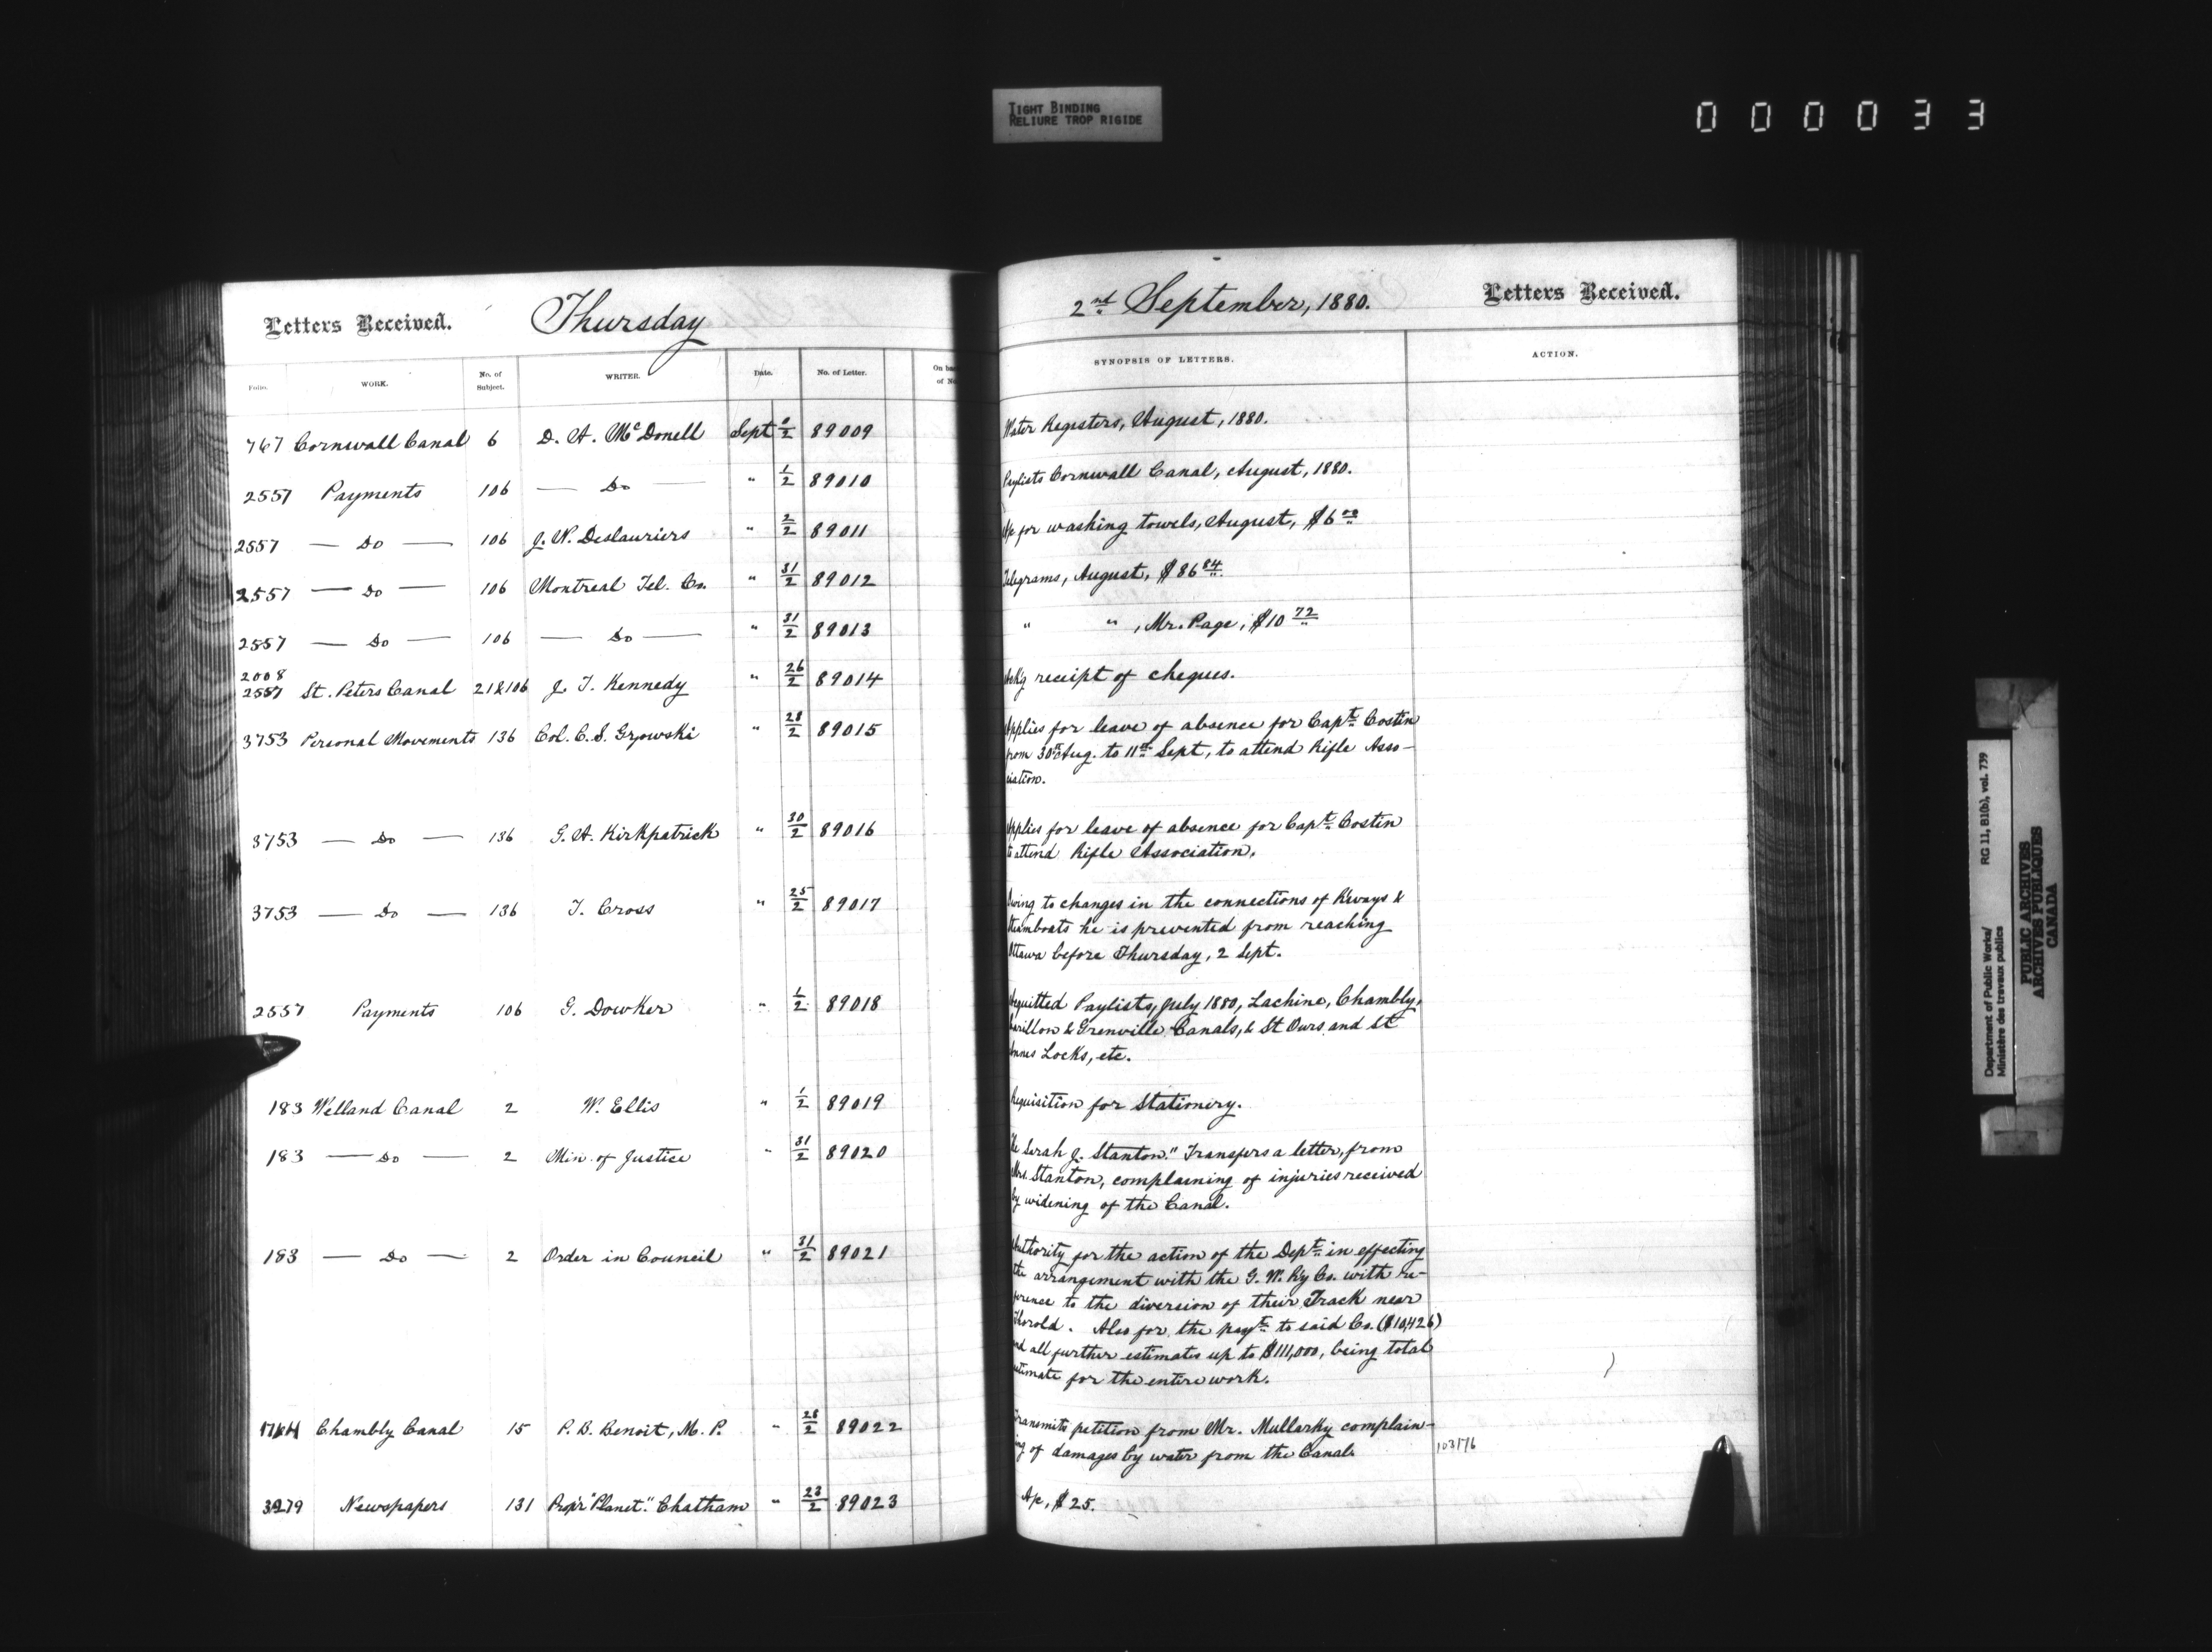 TIGHT BINDING
RELIURE TROP RIGIDE
000033
Letters Received. Thursday
2nd September, 1880. Letters Received.
Folio. WORK. No. of Subject. WRITER. Date. No. of Letter. On
of
SYNOPSIS OF LETTERS. ACTION.
767 Cornwall Canal 6 D. A. McDonell Sept 2/2 89009 Water Registers, August, 1880.
2557 Payments 106 — Do — " 1/2 89010 Paylists Cornwall Canal, August, 1880.
2557 — Do — 106 J. W. Deslauriers " 2/2 89011 A/c for washing towels, August, $6 00
2557 — Do — 106 Montreal Tel. Co. " 31/2 89012 Telegrams, August, $86 84
2557 — Do — 106 — Do — " 31/2 89013 " " , Mr. Page, $10 72
2008
2557 St. Peters Canal 21&106 J. T. Kennedy " 26/2 89014 Ackg receipt of cheques.
3753 Personal Movements 136 Col. C. S. Gzowski " 28/2 89015 Applies for leave of absence for Capt. Costin
from 30th Aug. to 11th Sept, to attend Rifle Asso-
ciation.
3753 — Do — 136 G. A. Kirkpatrick " 30/2 89016 Applies for leave of absence for Capt. Costin
to attend Rifle Association.
3753 — Do — 136 T. Cross " 25/2 89017 Owing to changes in the connections of R'ways &
Steamboats he is prevented from reaching
Ottawa before Thursday, 2 Sept.
2557 Payments 106 G. Dowker " 1/2 89018 Acquitted Paylists, July 1880, Lachine, Chambly,
Carillon & Grenville Canals, & St Ours and St
Annes Locks, etc.
183 Welland Canal 2 W. Ellis " 1/2 89019 Requisition for Stationery.
183 — Do — 2 Min. of Justice " 31/2 89020 Re Sarah J. Stanton." Transfers a letter, from
Mrs. Stanton, complaining of injuries received
by widening of the Canal.
183 — Do — 2 Order in Council " 31/2 89021 Authority for the action of the Dept. in effecting
the arrangement with the G. W. Ry Co. with re-
ference to the diversion of their Track near
Thorold. Also for the payt. to said Co. ($10,426)
and all further estimates up to $111,000, being total
estimate for the entire work.
Chambly Canal 15 P. B. Benoit, M. P. " 28/2 89022 Transmits petition from Mr. Mullarky complain-
ing of damages by water from the Canal. 103176
3279 Newspapers 131 Propr "Planet." Chatham " 23/2 89023 A/c, $25.
Department of Public Works/ RG 11, B1(b), vol. 739
Ministère des travaux publics
PUBLIC ARCHIVES
ARCHIVES PUBLIQUES
CANADA